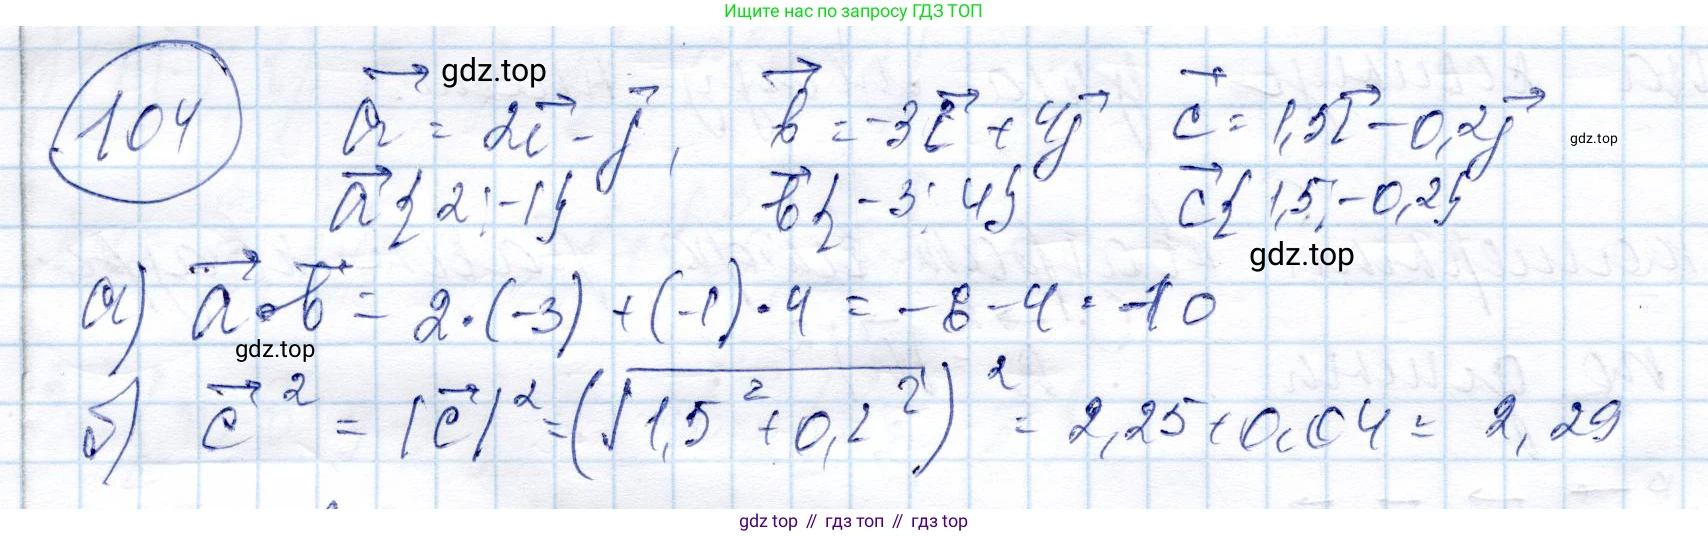 Ищите нас по запросу ГДЗ ТОП
104 a⃗ = 2i⃗ - j⃗, b⃗ = -3i⃗ + 4j⃗ c⃗ = 1,5i⃗ - 0,2j⃗
gdz.top
gdz.top
a⃗{2; -1} b⃗{-3; 4} c⃗{1,5; -0,2}
gdz.top
а) a⃗·b⃗ = 2·(-3) + (-1)·4 = -6 - 4 = -10
gdz.top
б) c⃗² = |c⃗|² = (√1,5² + 0,2²)² = 2,25 + 0,04 = 2,29
gdz top // гдз топ // gdz.top